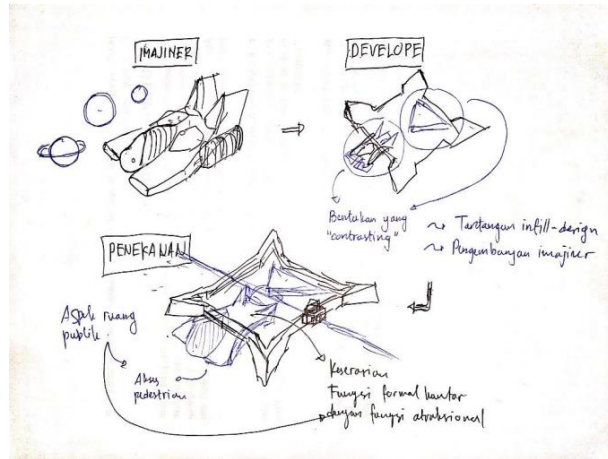 IMAJINER
DEVELOPE
Bentukan yang
"contrasting"
~> Tantangan infill-design
~> Pengembangan imajiner
PENEKANAN
Aspek ruang
publik
Akses
pedestrian
Keserasian
Fungsi formal kantor
dengan fungsi atraksional